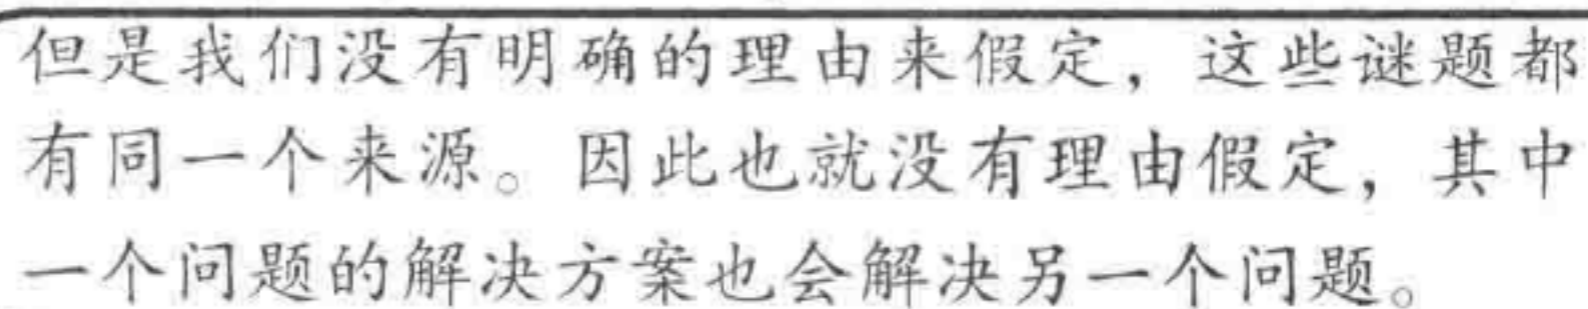 但是我们没有明确的理由来假定，这些谜题都
有同一个来源。因此也就没有理由假定，其中
一个问题的解决方案也会解决另一个问题。